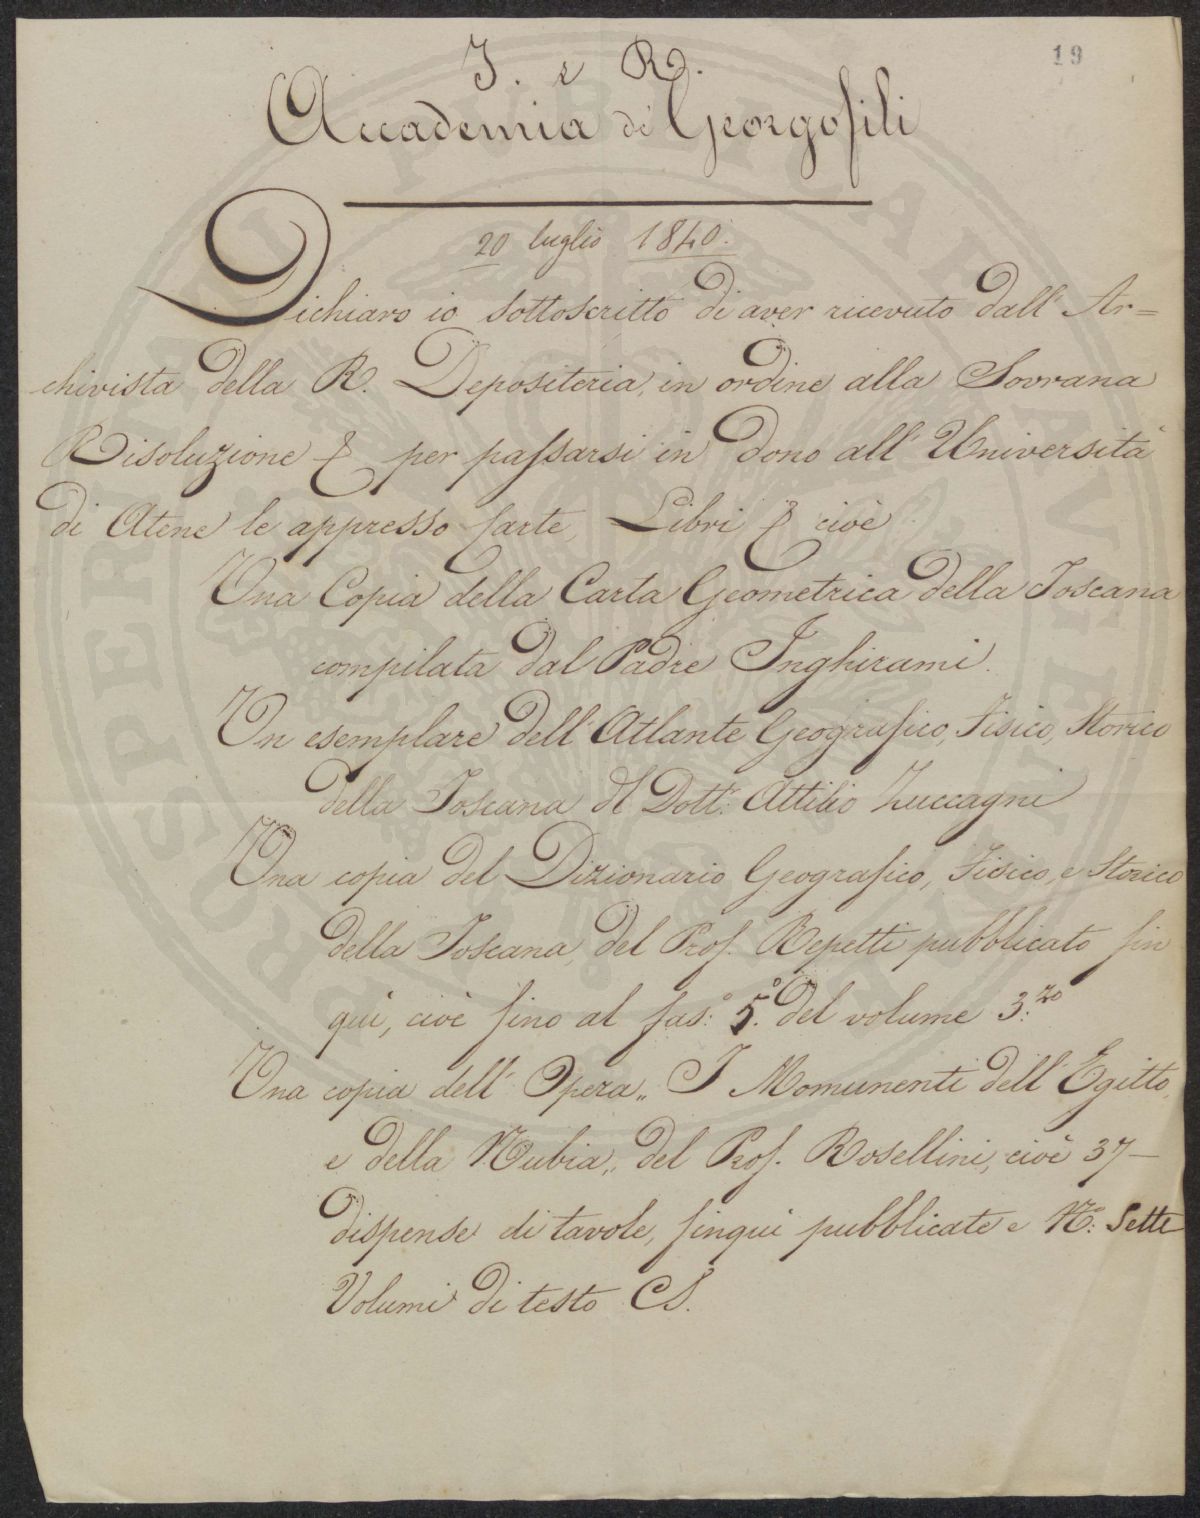 19
I. e R.
Accademia de' Georgofili
20 luglio 1840.
Dichiaro io sottoscritto di aver ricevuto dall' Ar=
chivista della R. Depositeria, in ordine alla Sovrana
Risoluzione & per passarsi in dono all' Università
di Atene le appresso Carte, Libri & cioè
Una Copia della Carta Geometrica della Toscana
compilata dal Padre Inghirami.
Un esemplare dell' Atlante Geografico, Fisico, Storico
della Toscana del Dott. Attilio Zuccagni
Una copia del Dizionario Geografico, Fisico, e Storico
della Toscana, del Prof. Repetti pubblicato fin
qui, cioè fino al fas.° 5.° del volume 3.zo
Una copia dell' Opera „ I Monumenti dell' Egitto,
e della Nubia „ del Prof. Rosellini, cioè 37 —
dispense di tavole, finqui pubblicate e N.° Sette
Volumi di testo